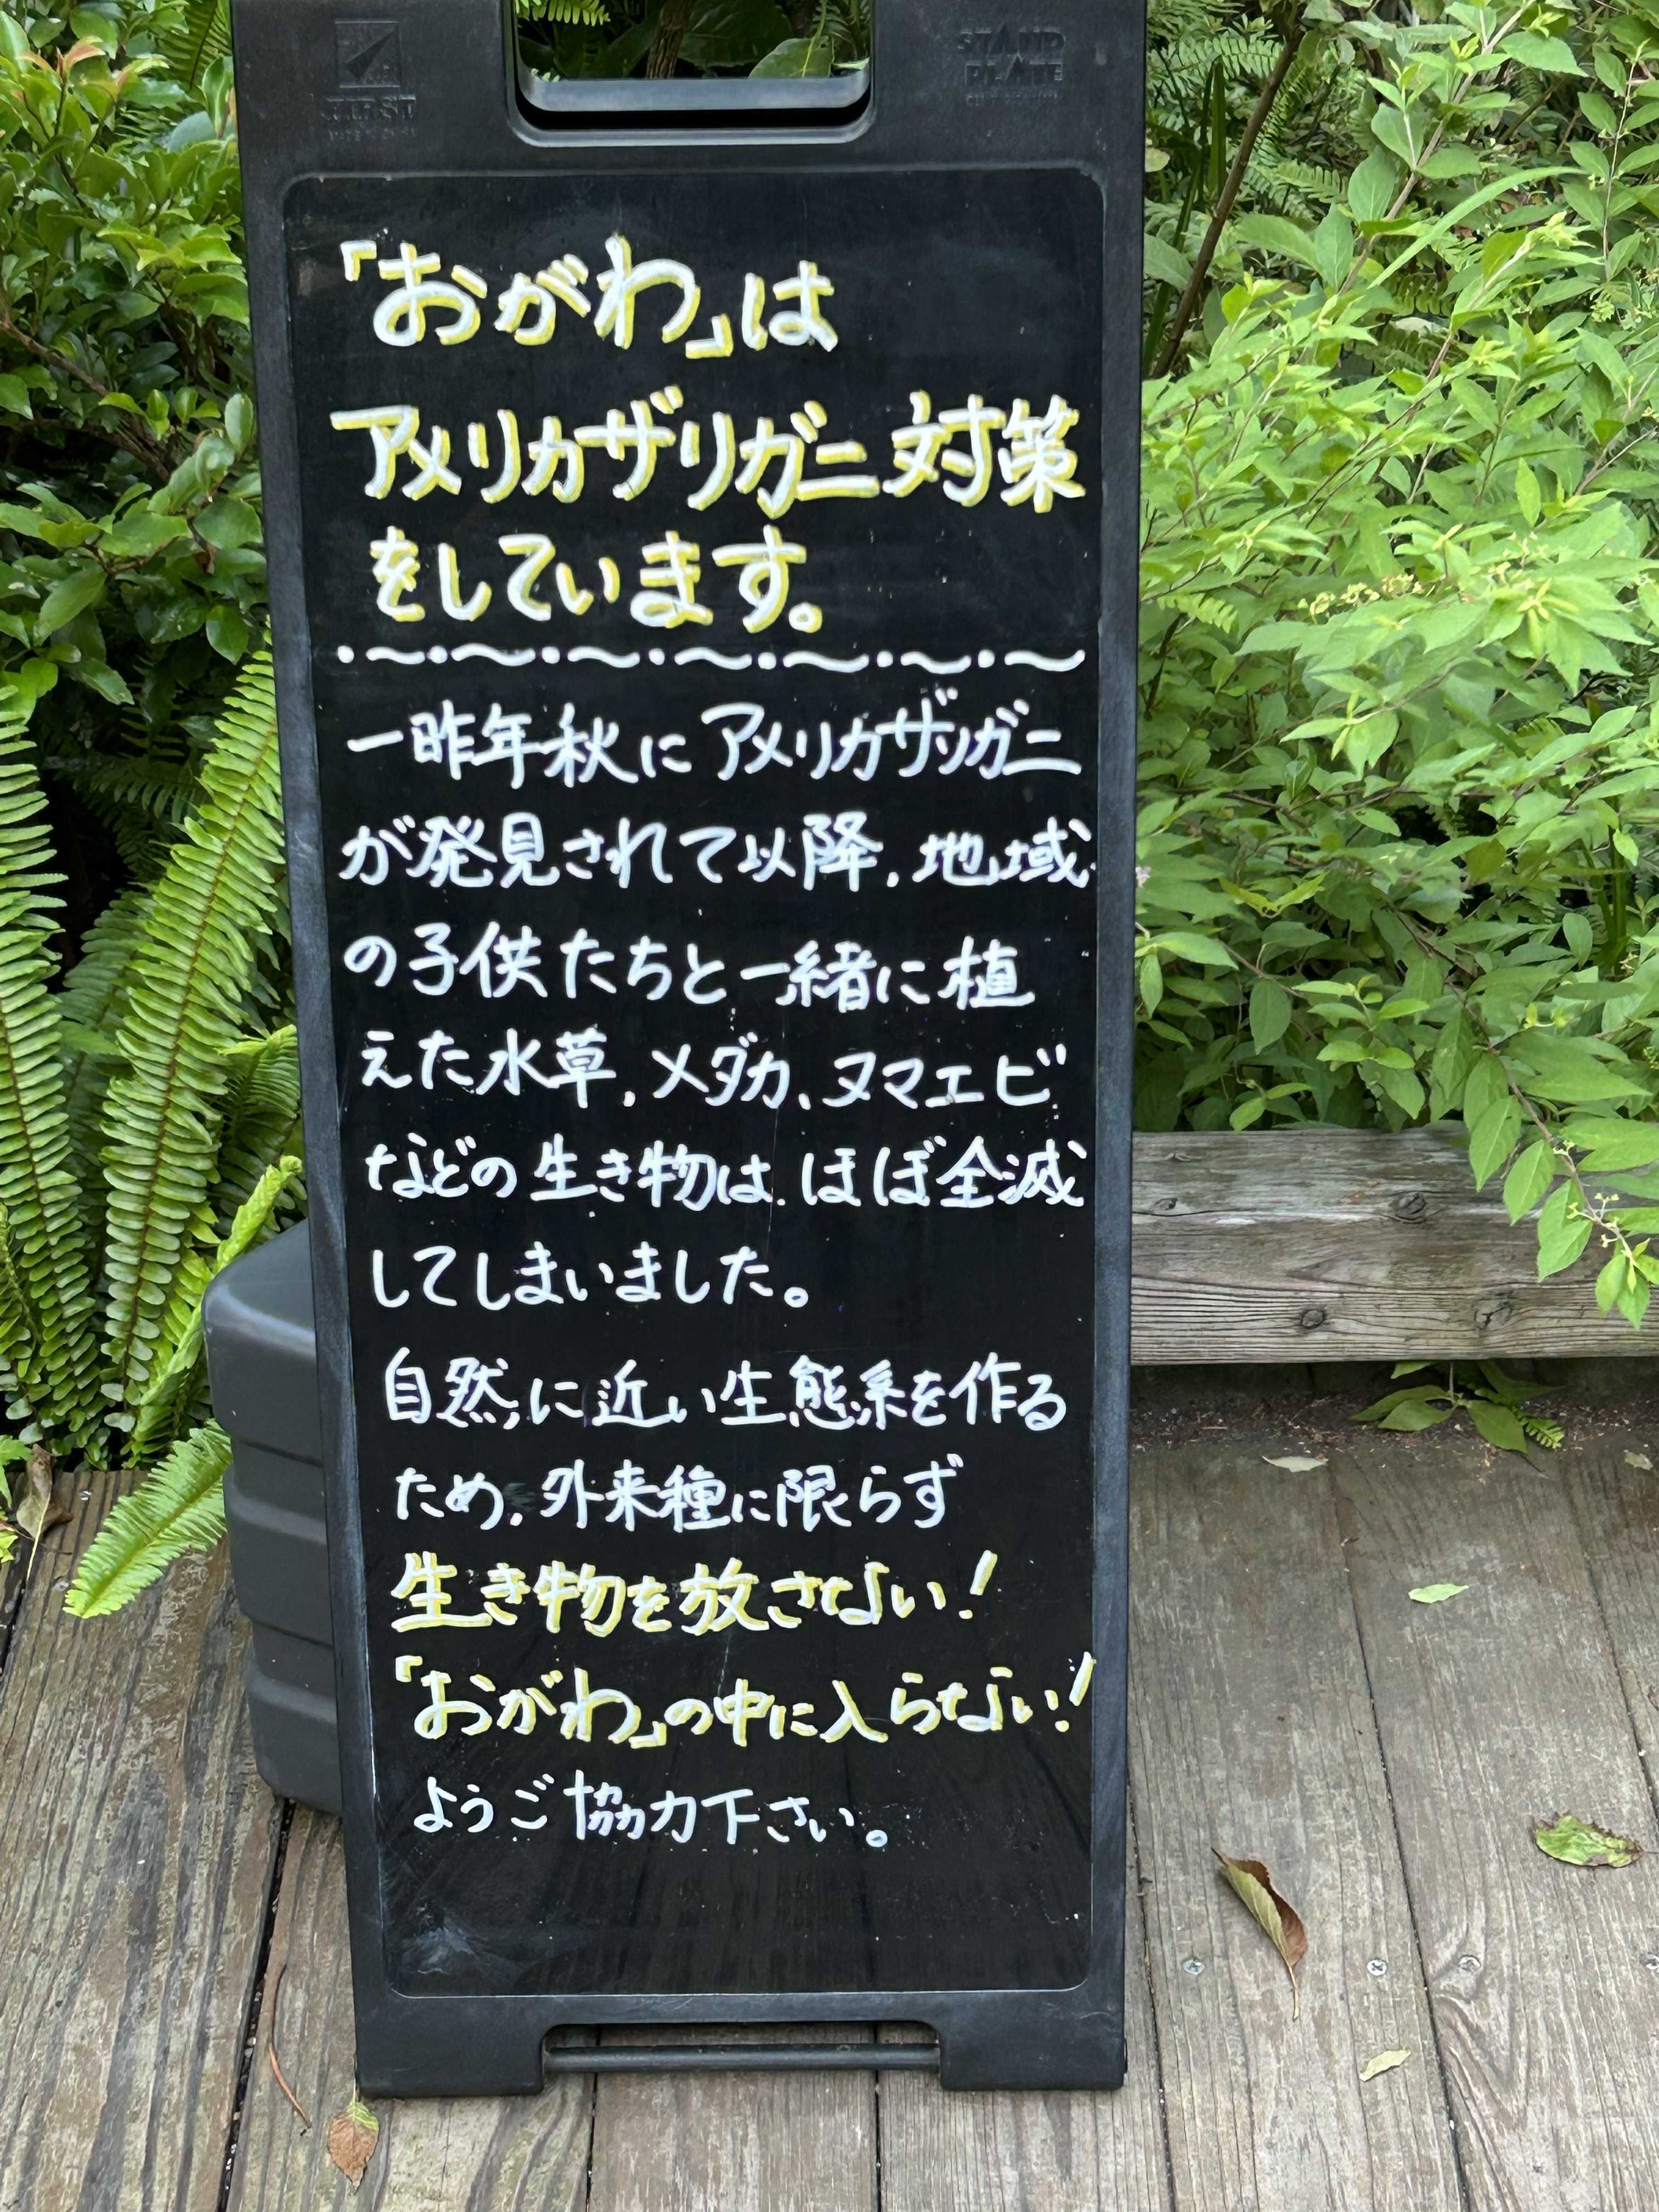 STAND
PLATE
「おがわ」は
アメリカザリガニ対策
をしています。
・〜・〜・〜・〜・〜・〜・〜
一昨年秋にアメリカザリガニ
が発見されて以降、地域
の子供たちと一緒に植
えた水草、メダカ、ヌマエビ
などの生き物は、ほぼ全滅
してしまいました。
自然に近い生態系を作る
ため、外来種に限らず
生き物を放さない!
「おがわ」の中に入らない!
ようご協力下さい。